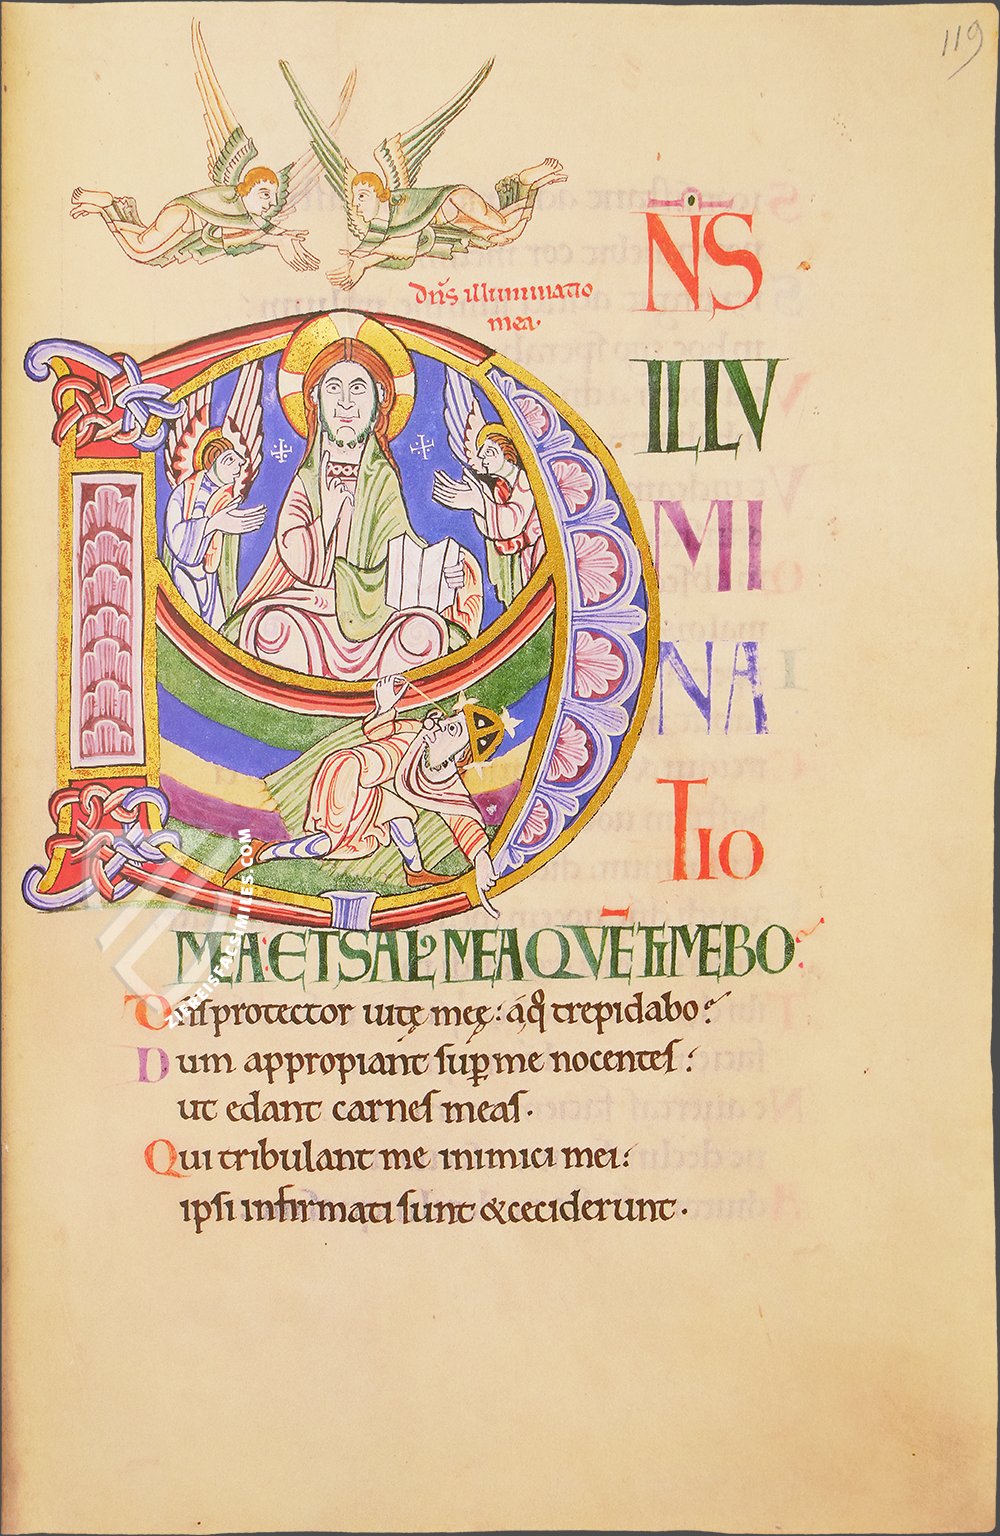 119
dn̄s illuminatio
mea·
N̄S
ILLU
MI
NA
TIO
MEA: ET SAL̵ MEA QVĒ TIMEBO
Dn̄s protector uitę meę: a q̊ trepidabo?
Dum appropiant sup̱ me nocentes:
ut edant carnes meas·
Qui tribulant me inimici mei:
ipsi infirmati sunt & ceciderunt·
ZIEREISFACSIMILES.COM